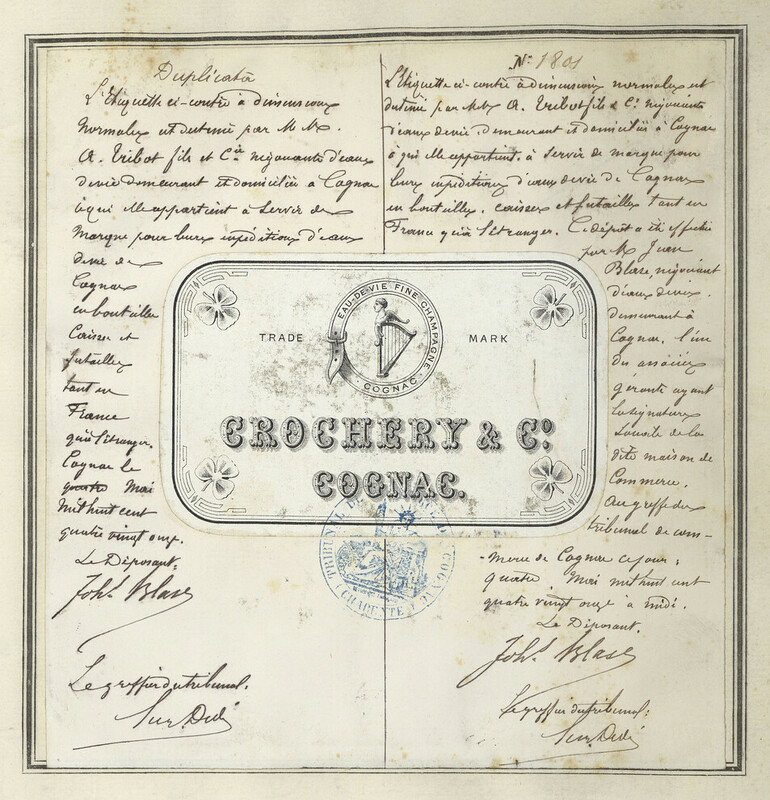 Duplicata
L'Etiquette ci-contre à dimensions
normales est destinée par M Mrs.
A. Tribot fils et Cie négociants d'eaux
de vie demeurant et domiciliés à Cognac
à qui elle appartient à servir de
marque pour leurs expéditions d'eaux
de vie de
Cognac
en bouteilles
Caisses et
futailles
tant en
France
qu'à l'étranger.
Cognac le
quatre Mai
mil huit cent
quatre vingt onze.
Le Déposant:
Johs Blase
Le greffier du tribunal.
No 1801
L'Etiquette ci-contre à dimensions normales est
destinée par M Mrs A. Tribot fils & Cie négociants
d'eaux de vie, demeurant et domiciliés à Cognac
à qui elle appartient, à servir de marque pour
leurs expéditions d'eaux de vie de Cognac
en bouteilles, caisses et futailles tant en
France qu'à l'étranger. Ce dépôt a été effectué
par M. Jean
Blase, négociant
d'eaux de vie,
demeurant à
Cognac, l'un
des associés
gérants ayant
la signature
sociale de la
dite maison de
Commerce.
Au greffe du
tribunal de com-
-merce de Cognac ce jour,
quatre Mai mil huit cent
quatre vingt onze à midi.
Le Déposant.
Johs Blase
Le greffier du tribunal:
EAU-DE-VIE FINE CHAMPAGNE
TRADE MARK
COGNAC
CROCHERY & Co.
COGNAC.
TRIBUNAL
CHARENTE